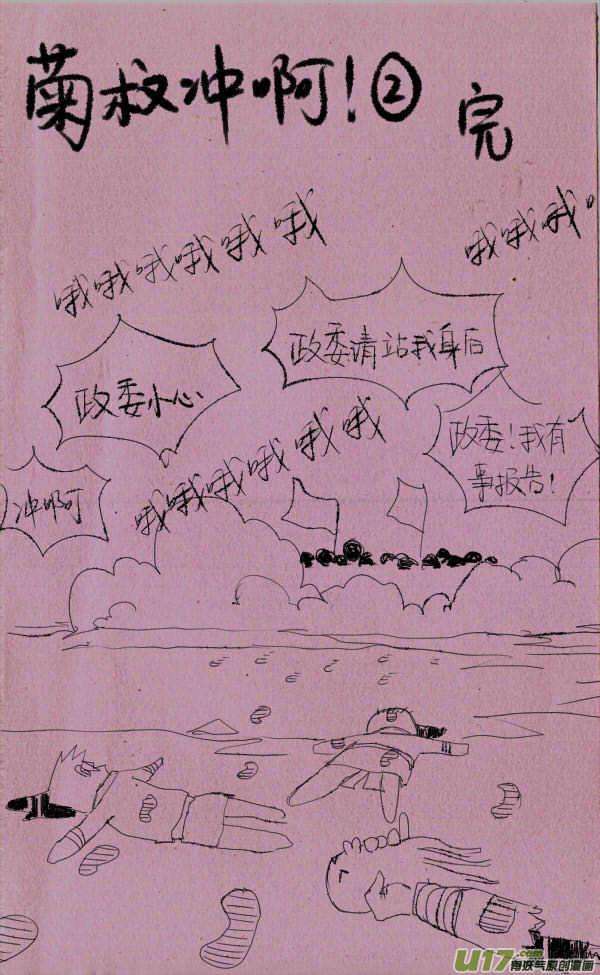 菊救冲啊！②
完
哦哦哦哦哦哦
哦哦哦
政委请站我身后
政委小心
政委！我有
事报告！
哦哦哦哦哦哦
冲啊
U17.com
有妖气原创漫画